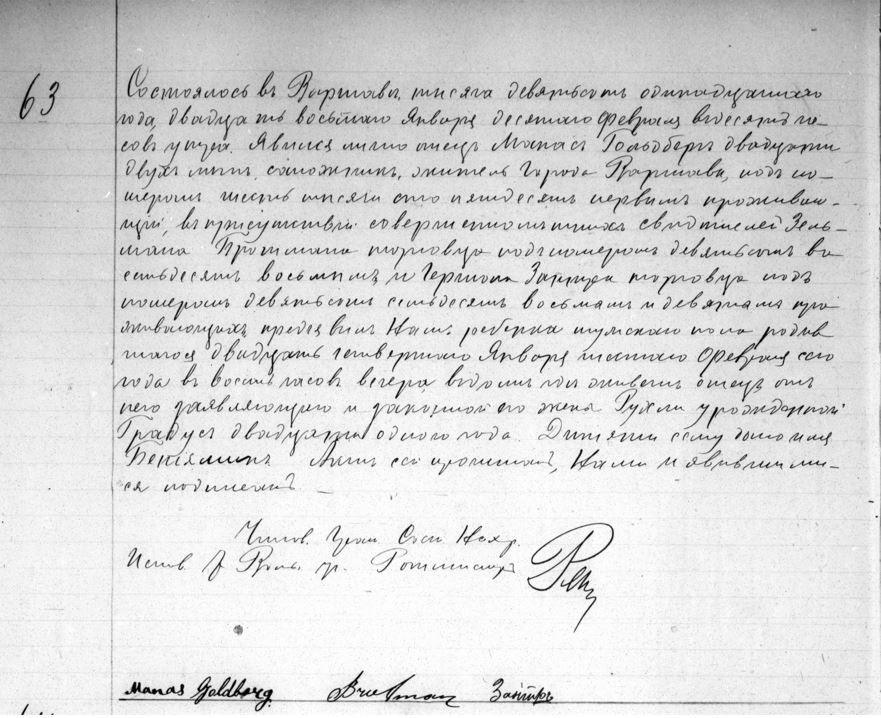 63
Состоялось въ Варшавѣ, тысяча девятьсотъ одинадцатаго
года, двадцать восьмаго Января десятаго Февраля въ десять ча-
совъ утра. Явился лично отецъ Манасъ Гольдбергъ двадцати
двухъ лѣтъ, сапожникъ, житель города Варшавы, подъ но-
меромъ шесть тысячъ сто пятдесятъ первымъ проживаю-
щій, въ присутствіи совершеннолѣтнихъ свидѣтелей Зель-
мана торговца подъ номеромъ девятьсотъ во
семьдесятъ восьмымъ и Германа торговца подъ
номеромъ девятьсотъ семьдесятъ восьмымъ и девятымъ про
живающихъ предъявилъ Намъ ребенка мужскаго пола родив
шагося двадцать четвертаго Января шестаго Февраля сего
года въ восемь часовъ вечера въ домѣ гдѣ живетъ отецъ отъ
него заявляющаго и законной его жены Рухли урожденной
Градусъ двадцати одного года. Дитяти сему дано имя
Беніяминъ Актъ сей прочитанъ, Нами и явившими-
ся подписанъ.
Чинов. Граж. Сост. Нехр.
Испов. Варш. Ротмистръ
Manas Goldberg